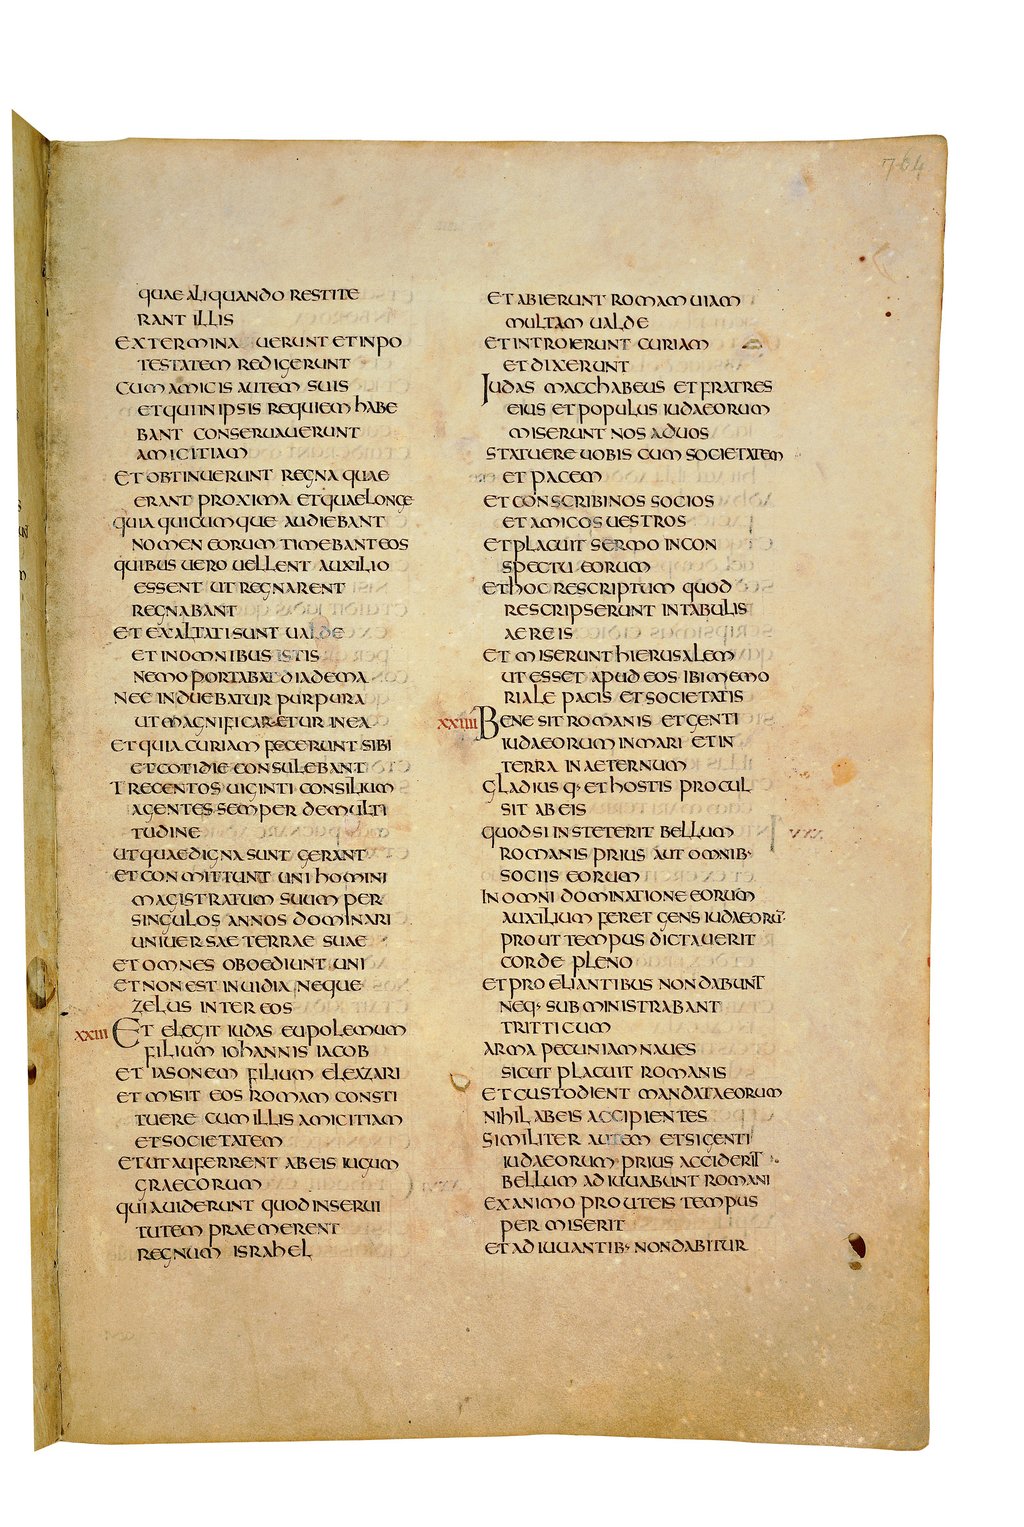 764
QUAE ALIQUANDO RESTITE
RANT ILLIS
EXTERMINA UERUNT ET IN PO
TESTATEM REDIGERUNT
CUM AMICIS AUTEM SUIS
ET QUI IN IPSIS REQUIEM HABE
BANT CONSERUAUERUNT
AMICITIAM
ET OBTINUERUNT REGNA QUAE
ERANT PROXIMA ET QUAE LONGE
QUIA QUICUMQUE AUDIEBANT
NOMEN EORUM TIMEBANT EOS
QUIBUS UERO UELLENT AUXILIO
ESSENT UT REGNARENT
REGNABANT
ET EXALTATI SUNT UALDE
ET IN OMNIBUS ISTIS
NEMO PORTABAT DIADEMA
NEC INDUEBATUR PURPURA
UT MAGNIFICARETUR IN EA
ET QUIA CURIAM FECERUNT SIBI
ET COTIDIE CONSULEBANT
TRECENTOS UIGINTI CONSILIUM
AGENTES SEMPER DE MULTI
TUDINE
UT QUAE DIGNA SUNT GERANT
ET CONMITTUNT UNI HOMINI
MAGISTRATUM SUUM PER
SINGULOS ANNOS DOMINARI
UNIUERSAE TERRAE SUAE
ET OMNES OBOEDIUNT UNI
ET NON EST INUIDIA NEQUE
ZELUS INTER EOS
XXIII ET ELEGIT IUDAS EUPOLEMUM
FILIUM IOHANNIS IACOB
ET IASONEM FILIUM ELEAZARI
ET MISIT EOS ROMAM CONSTI
TUERE CUM ILLIS AMICITIAM
ET SOCIETATEM
ET UT AUFERRENT AB EIS IUGUM
GRAECORUM
QUIA UIDERUNT QUOD IN SERUI
TUTEM PRAEMERENT
REGNUM ISRAHEL
ET ABIERUNT ROMAM UIAM
MULTAM UALDE
ET INTROIERUNT CURIAM
ET DIXERUNT
IUDAS MACCHABEUS ET FRATRES
EIUS ET POPULUS IUDAEORUM
MISERUNT NOS AD UOS
STATUERE UOBIS CUM SOCIETATEM
ET PACEM
ET CONSCRIBI NOS SOCIOS
ET AMICOS UESTROS
ET PLACUIT SERMO IN CON
SPECTU EORUM
ET HOC RESCRIPTUM QUOD
RESCRIPSERUNT IN TABULIS
AEREIS
ET MISERUNT HIERUSALEM
UT ESSET APUD EOS IBI MEMO
RIALE PACIS ET SOCIETATIS
XXIIII BENE SIT ROMANIS ET GENTI
IUDAEORUM IN MARI ET IN
TERRA IN AETERNUM
GLADIUSQ· ET HOSTIS PROCUL
SIT AB EIS
QUOD SI INSTETERIT BELLUM
ROMANIS PRIUS AUT OMNIB·
SOCIIS EORUM
IN OMNI DOMINATIONE EORUM
AUXILIUM FERET GENS IUDAEORŪ
PROUT TEMPUS DICTAUERIT
CORDE PLENO
ET PROELIANTIBUS NON DABUNT
NEQ· SUBMINISTRABANT
TRITTICUM
ARMA PECUNIAM NAUES
SICUT PLACUIT ROMANIS
ET CUSTODIENT MANDATA EORUM
NIHIL AB EIS ACCIPIENTES
SIMILITER AUTEM ET SI GENTI
IUDAEORUM PRIUS ACCIDERIT
BELLUM ADIUUABUNT ROMANI
EX ANIMO PROUT EIS TEMPUS
PERMISERIT
ET ADIUUANTIB· NON DABITUR